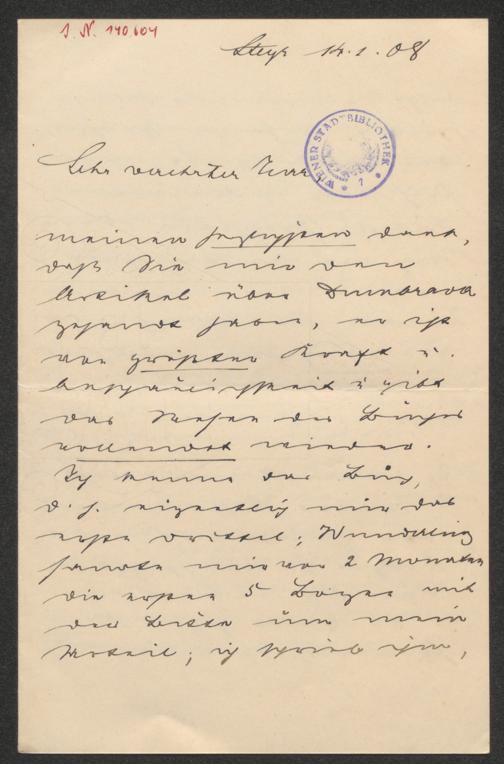 I. N. 140.604
Steyr 14.1.08
WIENER STADTBIBLIOTHEK
Sehr verehrter Herr,
meinen herzlichsten Dank,
daß Sie mir den
Artikel über Dumbrava
gesandt haben, er ist
von größter Kraft u.
Anschaulichkeit u gibt
das Wesen des Buches
vollendet wieder.
Ich kenne das Buch,
d. h. eigentlich nur das
erste Drittel;
sandte mir vor 2 Monaten
die ersten 5 Bogen mit
der Bitte um mein
Urteil; ich schrieb ihm,